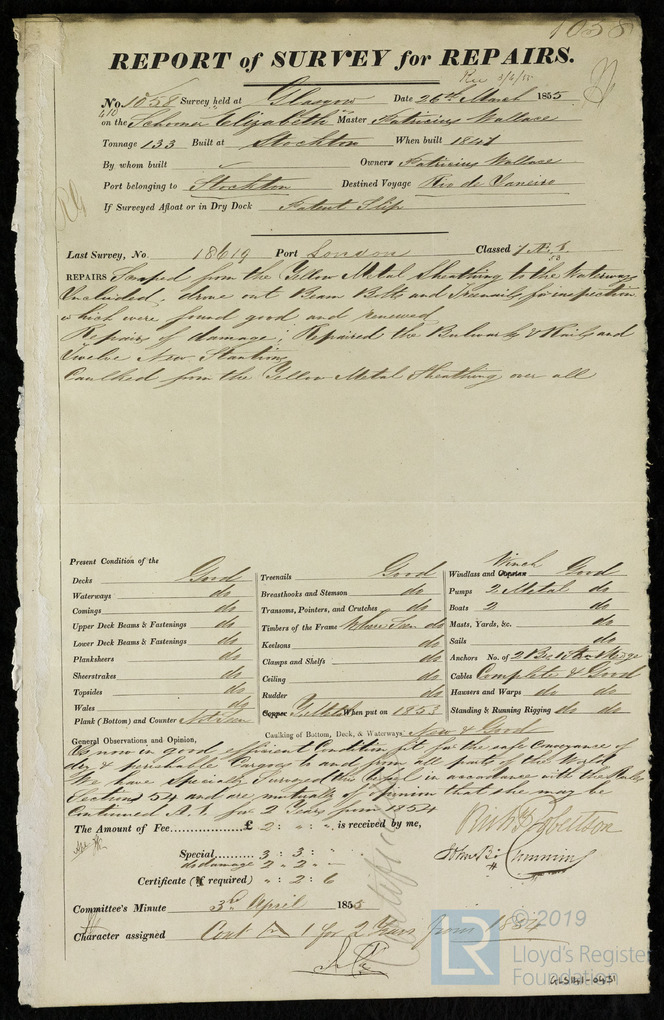 1058
REPORT of SURVEY for REPAIRS.
No 1058 Survey held at Glasgow Date 26th March 1855
410
on the Schooner Elizabeth Master Patricius Wallace
Tonnage 133 Built at Stockton When built 1847
By whom built Owners Patricius Wallace
Port belonging to Stockton Destined Voyage Rio de Janeiro
If Surveyed Afloat or in Dry Dock Patent Slip
Last Survey, No. 18619 Port London Classed 7 A.1. 53
REPAIRS from the Yellow Metal Sheathing to the Waterways
Included, drove out Beam Bolts and Treenails for inspection
which were found good and renewed
Repairs of damage; Repaired the Bulwarks & Rails and
Twelve New Stantions
Caulked from the Yellow Metal Sheathing over all
Present Condition of the
Decks Good
Waterways do
Comings do
Upper Deck Beams & Fastenings do
Lower Deck Beams & Fastenings do
Planksheers do
Sheerstrakes do
Topsides do
Wales do
Plank (Bottom) and Counter Not Seen
Treenails Good
Breasthooks and Stemson do
Transoms, Pointers, and Crutches do
Timbers of the Frame Where Seen do
Keelsons do
Clamps and Shelfs do
Ceiling do
Rudder do
Copper When put on 1853
Caulking of Bottom, Deck, & Waterways New & Good
Winch
Windlass and Capstan Good
Pumps 2 Metal do
Boats 2 do
Masts, Yards, &c. do
Sails do
Anchors No. of 2 Br 1 Stm Kedge
Cables Complete & Good
Hausers and Warps do do
Standing & Running Rigging do do
General Observations and Opinion,
Is now in good efficient Condition fit for the safe Conveyance of
dry & perishable Cargoes to and from all parts of the World
We have Specially Surveyed this Vessel in accordance with the Rules
Section 54 and are mutually of opinion that she may be
Continued A.1. for 2 Years from 1854
The Amount of Fee £ 2 : " : " is received by me,
Special 3 : 3 : "
do damage 2 " 2 " -
Certificate (If required) " : 2 : 6
Committee's Minute 3rd April 1855
Character assigned Cont A 1 for 2 Years from 1854
Certificate
© 2019
LR
Lloyd's Register
Foundation